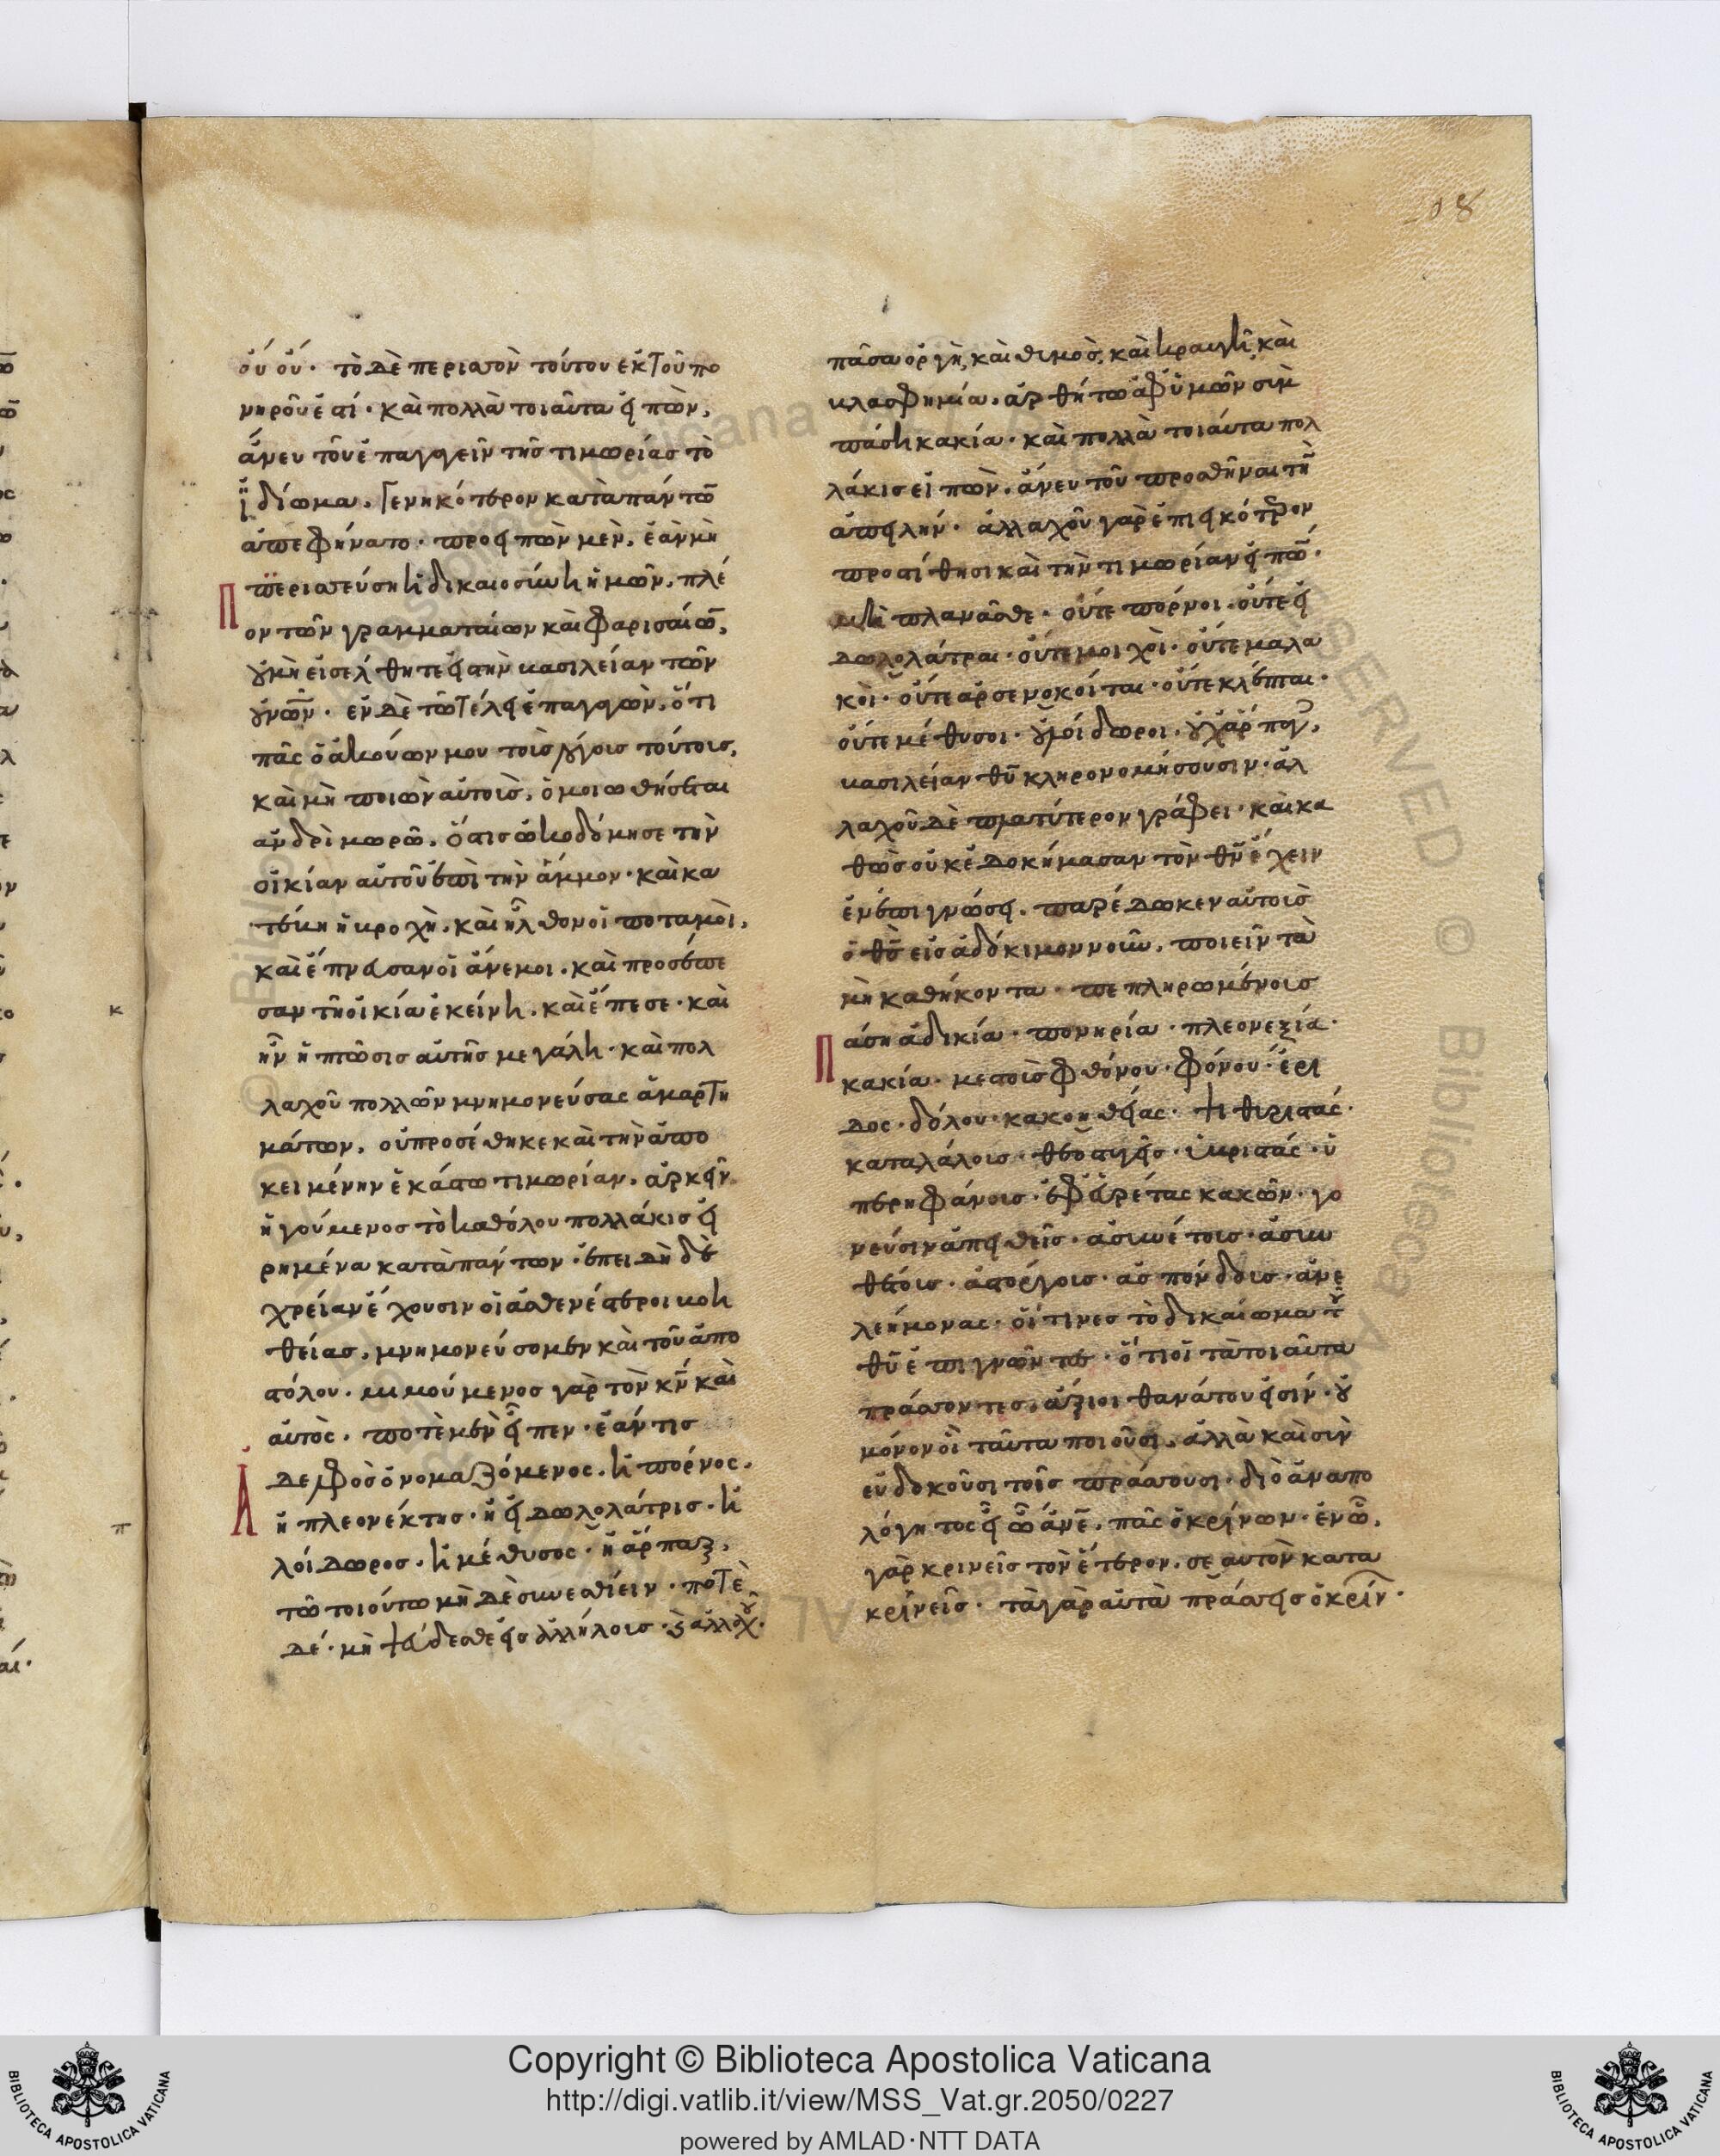 108
οὔ οὔ· τὸ δὲ περισσὸν τούτου ἐκ τοῦ πο
νηροῦ ἐστί· καὶ πολλὰ τοιαῦτα εἰπὼν,
ἄνευ τοῦ ἐπαγαγεῖν τῆς τιμωρίας τὸ
ἰδίωμα, γενηκότερον κατὰ πάντων
ἀπεφήνατο· προειπὼν μὲν, ἐὰν μὴ
περισσεύση ἡ δικαιοσύνη ἡμῶν, πλέ
ον τῶν γραμματαίων καὶ φαρισαίων,
οὐ μὴ εἰσέλθητε εἰς τὴν βασιλείαν τῶν
οὐνῶν· ἐν δὲ τῶ τέλει ἐπαγαγὼν, ὅτι
πᾶς ὁ ἀκούων μου τοὺς λόγους τούτους,
καὶ μὴ ποιῶν αὐτοὺς, ὁμοιωθήσεται
ἀνδρὶ μωρῶ, ὅστις ὠκοδόμησε τὴν
οἰκίαν αὐτοῦ ἐπὶ τὴν ἄμμον· καὶ κα
τέβη ἡ βροχὴ, καὶ ἦλθον οἱ ποταμοὶ,
καὶ ἔπνευσαν οἱ ἄνεμοι, καὶ προσέπε
σαν τῆ οἰκία ἐκείνη, καὶ ἔπεσε· καὶ
ἦν ἡ πτῶσις αὐτῆς μεγάλη· καὶ πολ
λαχοῦ πολλῶν μνημονεύσας ἁμαρτη
μάτων, οὐ προσέθηκε καὶ τὴν ἀπο
κειμένην ἑκάστω τιμωρίαν, ἀρκεῖν
ἡγούμενος τὸ καθόλου πολλάκις εἰ
ρημένα κατὰ πάντων· ἐπειδὴ δὲ
χρείαν ἔχουσιν οἱ ἀσθενέστεροι βοη
θείας, μνημονεύσομεν καὶ τοῦ ἀπο
στόλου· μιμούμενος γὰρ τὸν κν καὶ
αὐτὸς, ποτὲ μὲν εἶπεν· ἐάν τις
ἀ δελφὸς ὀνομαζόμενος, ἢ πόρνος,
ἢ πλεονέκτης· ἢ εἰδωλολάτρις· ἢ
λοίδωρος, ἢ μέθυσος· ἢ ἅρπαξ,
τῶ τοιούτω μὴ δὲ συνεσθίειν· ποτὲ
δέ· μὴ ψεύδεσθε εἰς ἀλλήλους· καὶ ἀλλαχοῦ·
πᾶσα ὀργὴ, καὶ θυμὸς, καὶ κραυγὴ, καὶ
βλασφημία, ἀρθήτω ἀφ ὑμῶν σὺν
πάση κακία· καὶ πολλὰ τοιαῦτα πολ
λάκις εἰπὼν, ἄνευ τοῦ προσθῆναι τῆ
ἀπειλήν· ἀλλαχοῦ γὰρ ἐπιεικότερον
προστίθησι καὶ τὴν τιμωρίαν εἰπών·
μὴ πλανᾶσθε· οὔτε πόρνοι· οὔτε εἰ
δωλολάτραι· οὔτε μοιχοὶ· οὔτε μαλα
κοὶ· οὔτε ἀρσενοκοίται· οὔτε κλέπται·
οὔτε μέθυσοι· οὐ λοίδωροι· οὐχ ἅρπαγες,
βασιλείαν θυ κληρονομήσουσιν· ἀλ
λαχοῦ δὲ πλατύτερον γράφει· καὶ κα
θὼς οὐκ ἐδοκήμασαν τὸν θν ἔχειν
ἐν ἐπιγνώσει, παρέδωκεν αὐτοὺς
ὁ θς εἰς ἀδόκιμον νοῦν, ποιεῖν τὰ
μὴ καθήκοντα· πεπληρωμένους
π άση ἀδικία· πονηρία· πλεονεξία·
κακία· μεστοὺς φθόνου· φόνου· ἔρι
δος· δόλου· κακοηθείας· ψιθυριστάς·
καταλάλους· θεοστυγεῖς· ὑβριστάς· ὑ
περηφάνους· ἐφευρέτας κακῶν· γο
νεύσιν ἀπειθεῖς· ἀσυνέτους· ἀσυν
θέτους· ἀστόργους· ἀσπόνδους· ἀνε
λεήμονας· οἵτινες τὸ δικαίωμα τοῦ
θυ ἐπιγνῶντες· ὅτι οἱ τὰ τοιαῦτα
πράσσοντες, ἄξιοι θανάτου εἰσίν· οὐ
μόνον οἱ ταῦτα ποιοῦσι, ἀλλὰ καὶ σὺν
ευδοκοῦσι τοῖς πράσσουσι· διὸ ἀναπο
λόγητος εἶ ὦ ἄνε, πᾶς ὁ κρίνων· ἐν ὧ,
γὰρ κρινεῖς τὸν ἕτερον, σεαυτὸν κατα
κρίνεις· τὰ γὰρ αὐτὰ πράσσεις ὁ κρίν·
κ
π
BIBLIOTECA APOSTOLICA VATICANA
Copyright © Biblioteca Apostolica Vaticana
http://digi.vatlib.it/view/MSS_Vat.gr.2050/0227
powered by AMLAD·NTT DATA
BIBLIOTECA APOSTOLICA VATICANA